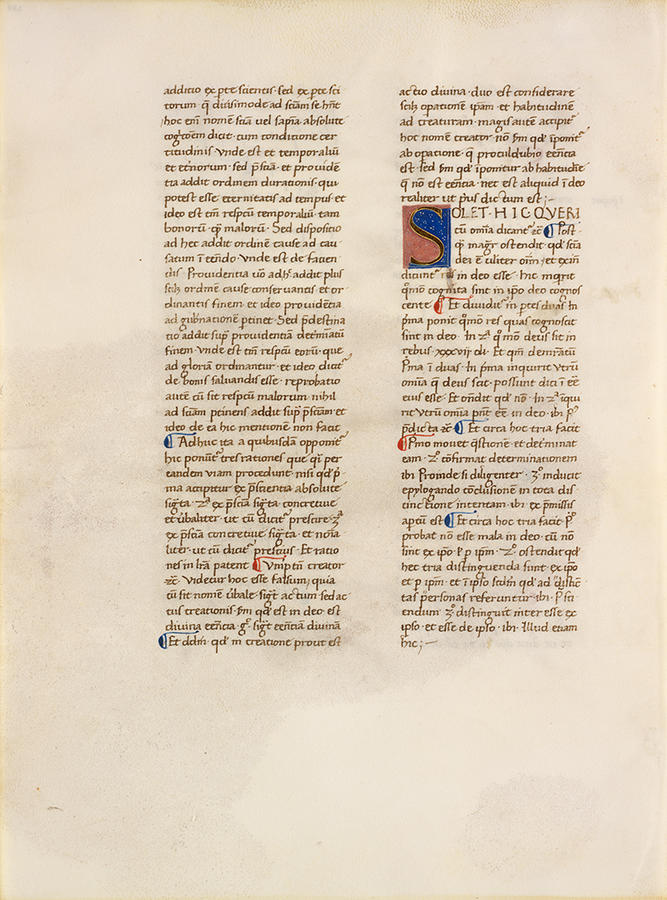 additio ex pte scientis · sed ex pte sci
torum q̃ diuisimode ad sciam se hñt
hoc eni nomẽ sciã vel sapiã absolute
cogitoẽm dicit · cum conditione cer
titudinis · Vnde est et temporaliũ
et etnorum · sed psciã · et prouidẽ
tia addit ordinem durationis · qui
potest esse eternitatis ad tempus · et
ideo est tm respcũ temporalium · tam
bonorũ · q̃ malorũ · Sed dispositio
ad hec addit ordinẽ cause ad cau
satum
Prouidentia uo adhuc addit plus
scilz ordinẽ cause conseruantis et or
dinantis finem · et ideo prouidẽtia
ad gubnationẽ ptinet · Sed pdestina
tio addit sup prouidentiã detmiatũ
finem · vnde est tm respcũ eorũ · que
ad gloriã ordinantur · et ideo dicit
de bonis saluandis esse · reprobatio
autẽ cũ sit respcũ malorum · nihil
ad sciam ptinens addit sup psciam · et
ideo de ea hic mentionẽ non facit
Ad huc ita a quibusdã opponit
hic ponunt tres rationes que quasi per
eandem viam procedunt · nisi qd p
ma accipitur ex pscientia absolute
sigta · 2ª ex psciã sigta concretiue
et ubaliter · ut cũ dicit prescire 3ª
ex psciã concretiue sigta · et noia
liter · ut cũ dicit prescius · Et ratio
nes in lra patent Vmptũ creator
zc · Videtur hoc esse falsum · quia
cũ sit nomẽ ubale · sigt actum · sed ac
tus creationis · fm qd est in deo · est
diuina eẽntia · g° · sigt eẽntiã diuinã
Et ddm · qd in creatione prout est
actio diuina · duo est considerare
scilz opationẽ ipam · et habitudinẽ
ad creaturam · magis autẽ accipit
hoc nomẽ creator · no fm qd iponit
ab opatione · q̃ proculdubio eẽntia
est · sed fm qd iponitur ab habitudie
q̃ nõ est eẽntia · nec est aliquid i deo
realiter ut pus dictum est ;–
SOLET HIC QVERI
cũ omia dicant zc Post
q̃ magr ostendit qd scia
dei ẽ uiliter omi · et ex in
in deo esse · hic inqrit
qmo cognita sint in ipo deo cognos
cente Et diuidit in ptes duas · In
pma ponit qmo res quas cognoscit
sint in deo · In 2ª qmo deus sit in
rebus · xxxvij di
Pma i duas · In pma inquirit vtrũ
omia q̃ deus scit · possunt dici i eẽ
eius esse · Et oñdit qd nõ · In 2ª iqui
rit vtrũ omia pnt eẽ in deo · ibi p
pdicta zc · Et circa hoc tria facit
Pmo mouet qstionẽ et detminat
eam · 2° confirmat determinationem
ibi Proinde si diligenter · 3° inducit
epylogando conclusionẽ in tota dis
tinctione intentam · ibi ex pmissis
aptũ est Et circa hoc tria facit p°
probat nõ esse mala in deo · cũ nõ
sint ex ipo · 2° ostendit qd
hec tria distinguenda sunt · ex ipo
et p ipm · et i ipso scdm qd ad distic
tas psonas referuntur · ibi · P sci
endum 3° distinguit inter esse ex
ipso · et esse de ipso · ibi · Illud etiam
hic ;–